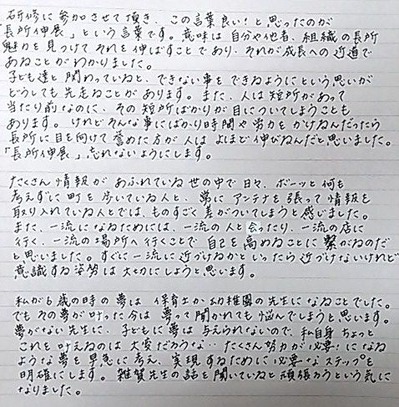 研修に参加させて頂き、この言葉良い！と思ったのが
「長所伸展」という言葉です。意味は自分や他者、組織の長所
魅力を見つけてそれを伸ばすことであり、それが成長への近道で
あることがわかりました。
子ども達と関わっていると、できない事をできるようにという思いが
どうしても先走ることがあります。また、人は短所があって
当たり前なのに、その短所ばかりが目についてしまうことも
あります。けれどそんな事にばかり時間や労力をかけるんだったら
長所に目を向けて誉めた方が人はよほど伸びるんだと思いました。
「長所伸展」忘れないようにします。
たくさん情報があふれている世の中で日々、ボーッと何も
考えずに町を歩いている人と、常にアンテナを張って情報を
取り入れている人とでは、ものすごく差がついてしまうと感じました。
また、一流になるためには、一流の人と会ったり、一流の店に
行く、一流の場所へ行くことで自己を高めることに繋がるのだ
と思いました。すぐに一流に近づけるかといったら近づけないけれど
意識する姿勢は大切にしようと思います。
私が6歳の時の夢は保育士か幼稚園の先生になることでした。
でもその夢が叶った今は夢って聞かれても悩んでしまうと思います。
夢がない先生に、子どもに夢は与えられないので、私自身ちょっと
これを叶えるのは大変だろうな… たくさん努力が必要！になる
ような夢を早急に考え、実現するために必要なステップを
明確にします。雑賀先生の話を聞いていると頑張ろうという気に
なりました。